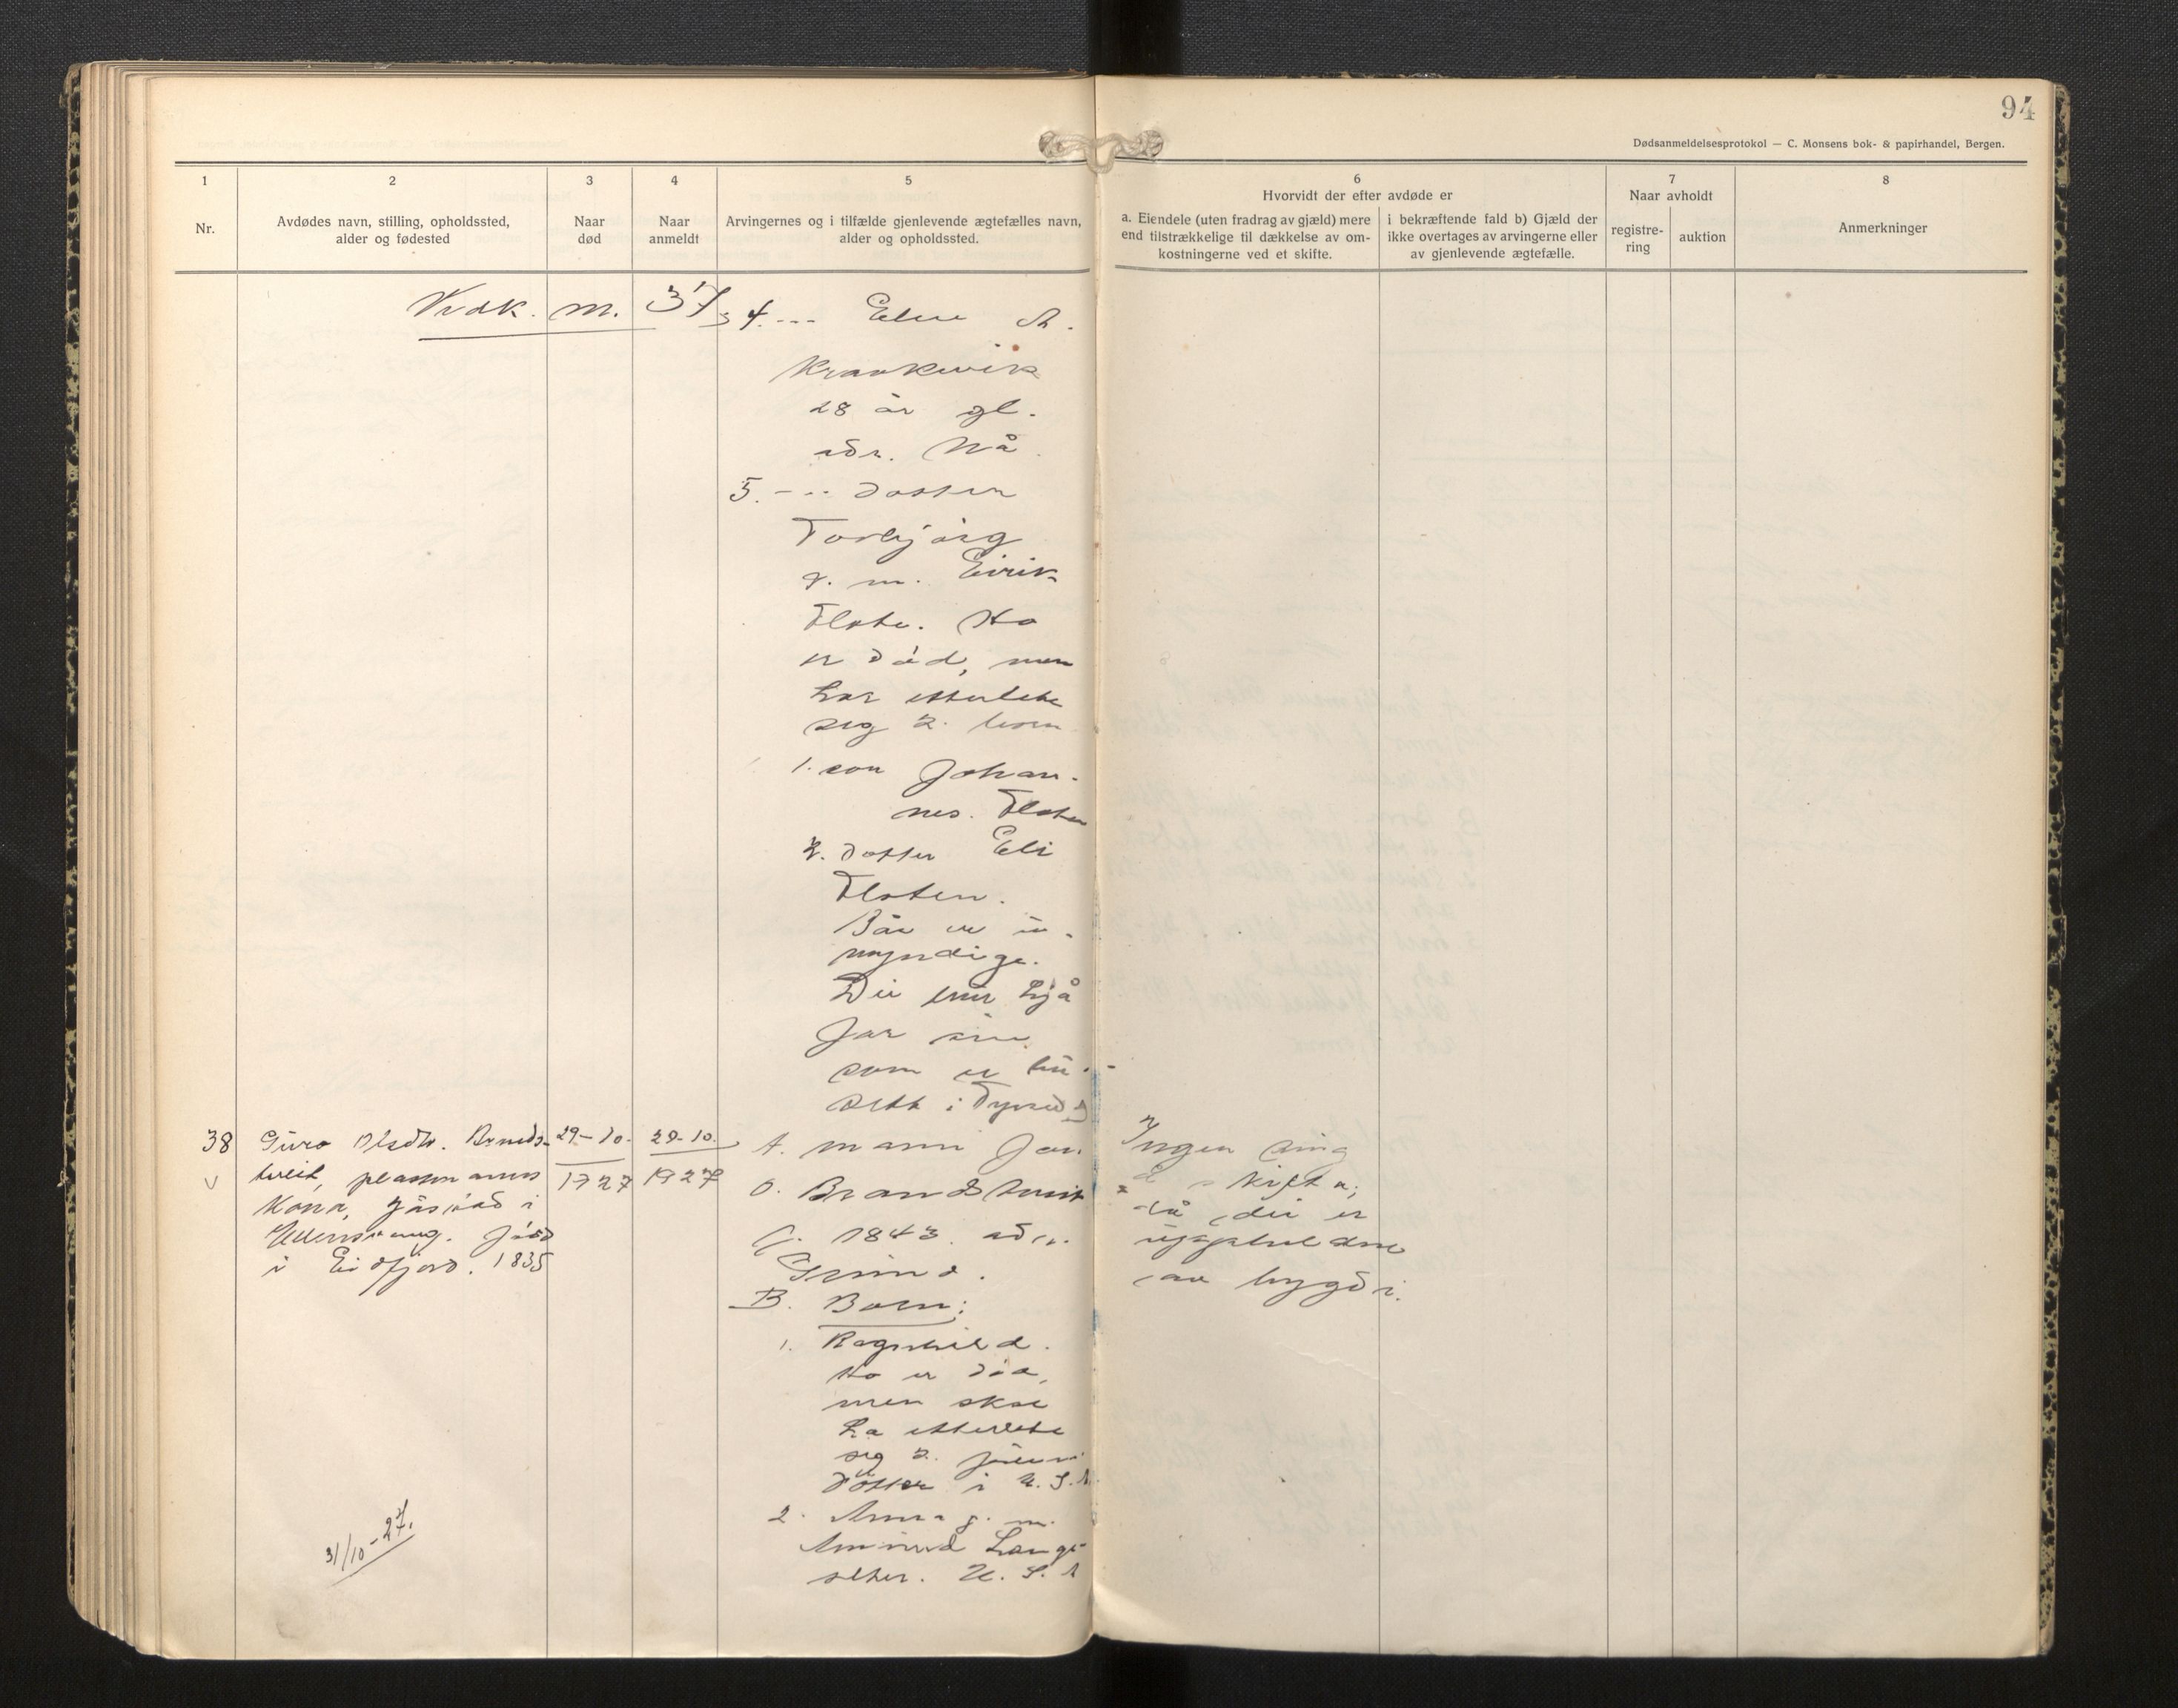 94
Dødsanmeldelsesprotokol — C. Monsens bok- & papirhandel, Bergen.
1
2
3
4
5
6
7
8
Nr.
Avdødes navn, stilling, opholdssted,
alder og fødested
Naar
død
Naar
anmeldt
Arvingernes og i tilfælde gjenlevende ægtefælles navn,
alder og opholdssted.
Hvorvidt der efter avdøde er
a. Eiendele (uten fradrag av gjæld) mere
end tilstrækkelige til dækkelse av om-
kostningerne ved et skifte.
i bekræftende fald b) Gjæld der
ikke overtages av arvingerne eller
av gjenlevende ægtefælle.
Naar avholdt
registre-
ring
auktion
Anmerkninger
Vedk. nr. 37
4. --- A.
28 år gl.
adr. Nå.
5. --- dotter
Torbjørg
g. m. Eirik
Ho
er død, men
har etterlete
seg 2. born
1. son Johan-
nes.
2. dotter Eli
Båe er u-
myndige.
Dei hjå
far sin
som er bu-
sett i
38
Guro Olsdtr.
tveit, plassmanns
kona, i
Ullensvang. fødd
i Eidfjord. 1835
29-10.
1927
29-10.
1927
A. mann Jon
O. Brandstveit
f. 1843. adr.
B. Born:
1. Ragnhild.
Ho er død,
men skal
ha etterlete
seg 2.
døtter i U.S.A.
2. Anna g. m.
Åmund Lang-
seter. U.S.A
Ingen ting
å skifta,
då dei er
av bygdi.
31/10-27.